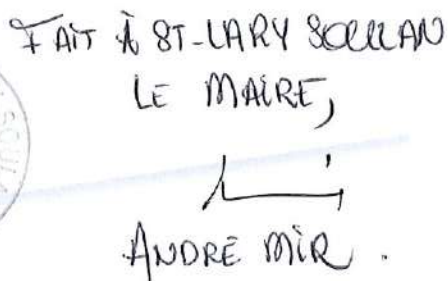 FAIT À ST-LARY SOULAN
LE MAIRE,
ANDRE MIR.
SOULA